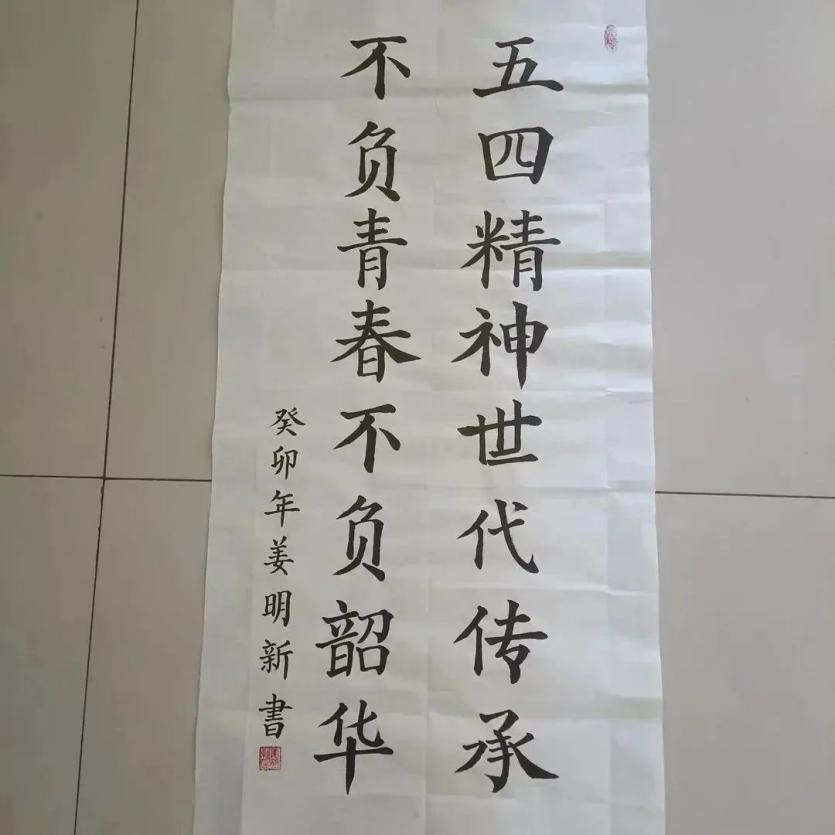 五四精神世代传承
不负青春不负韶华
癸卯年姜明新書